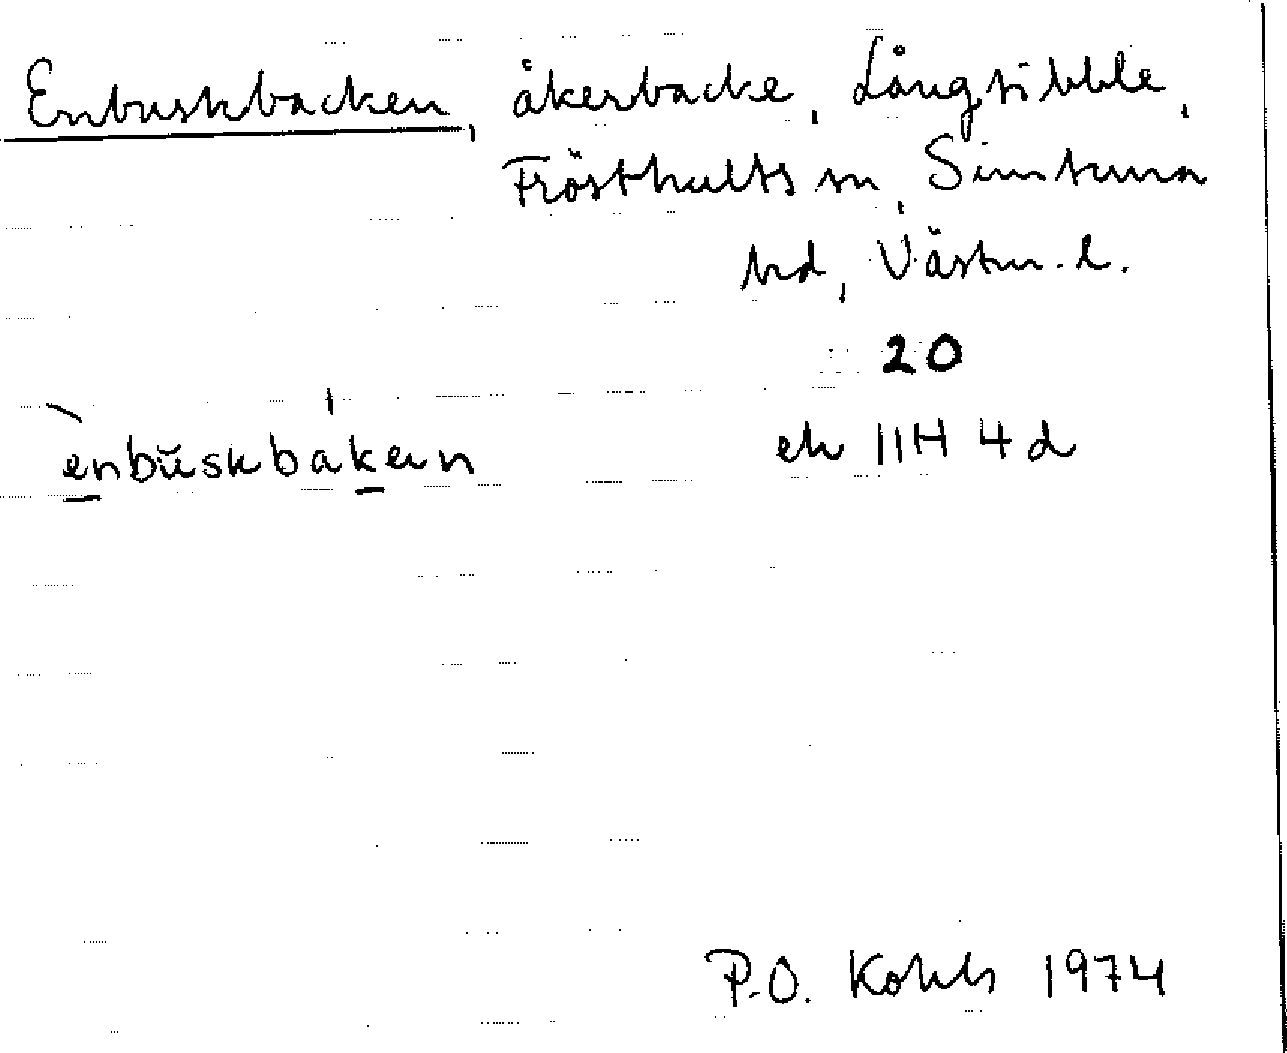 Enbuskbacken, åkerbacke, Långsibble,
Frösthults sn, Simtuna
hd, Västm. l.
20
enbŭskbaken ek 11H 4d
P.O. 1974